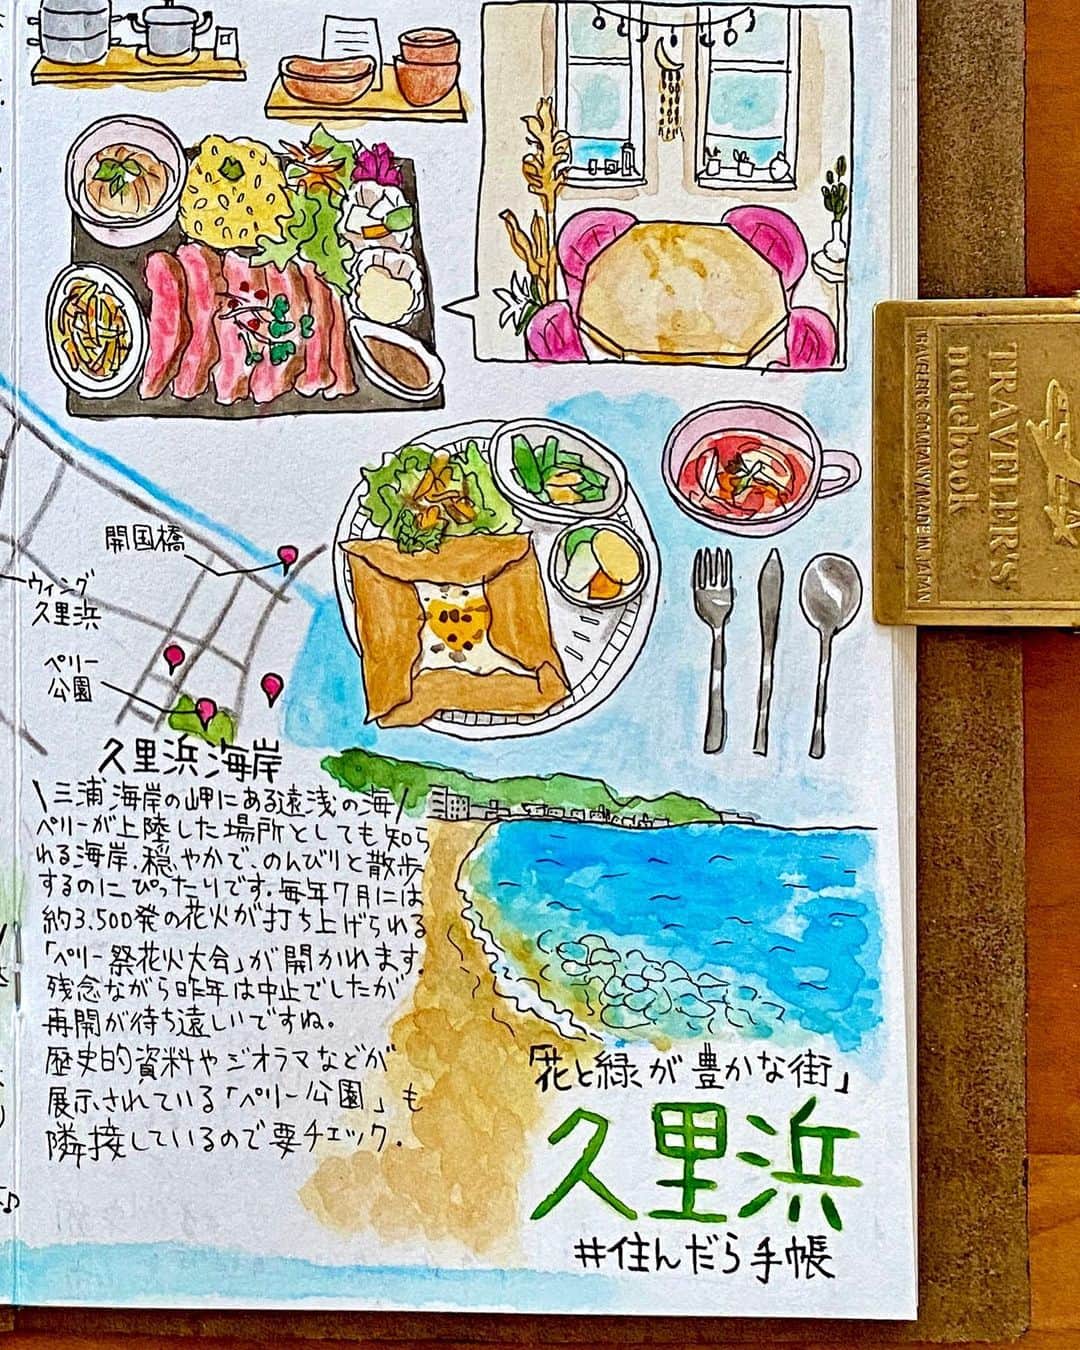 開国橋
ウィング
久里浜
ペリー
公園
久里浜海岸
\三浦海岸の岬にある遠浅の海/
ペリーが上陸した場所としても知ら
れる海岸.穏やかで、のんびりと散歩
するのにぴったりです.毎年7月には
約3.500発の花火が打ち上げられる
「ペリー祭花火大会」が開かれます.
残念ながら昨年は中止でしたが
再開が待ち遠しいですね。
歴史的資料やジオラマなどが
展示されている「ペリー公園」も
隣接しているので要チェック.
「花と緑が豊かな街」
久里浜
#住んだら手帳
TRAVELER'S
notebook
TRAVELER'S COMPANY MADE IN JAPAN